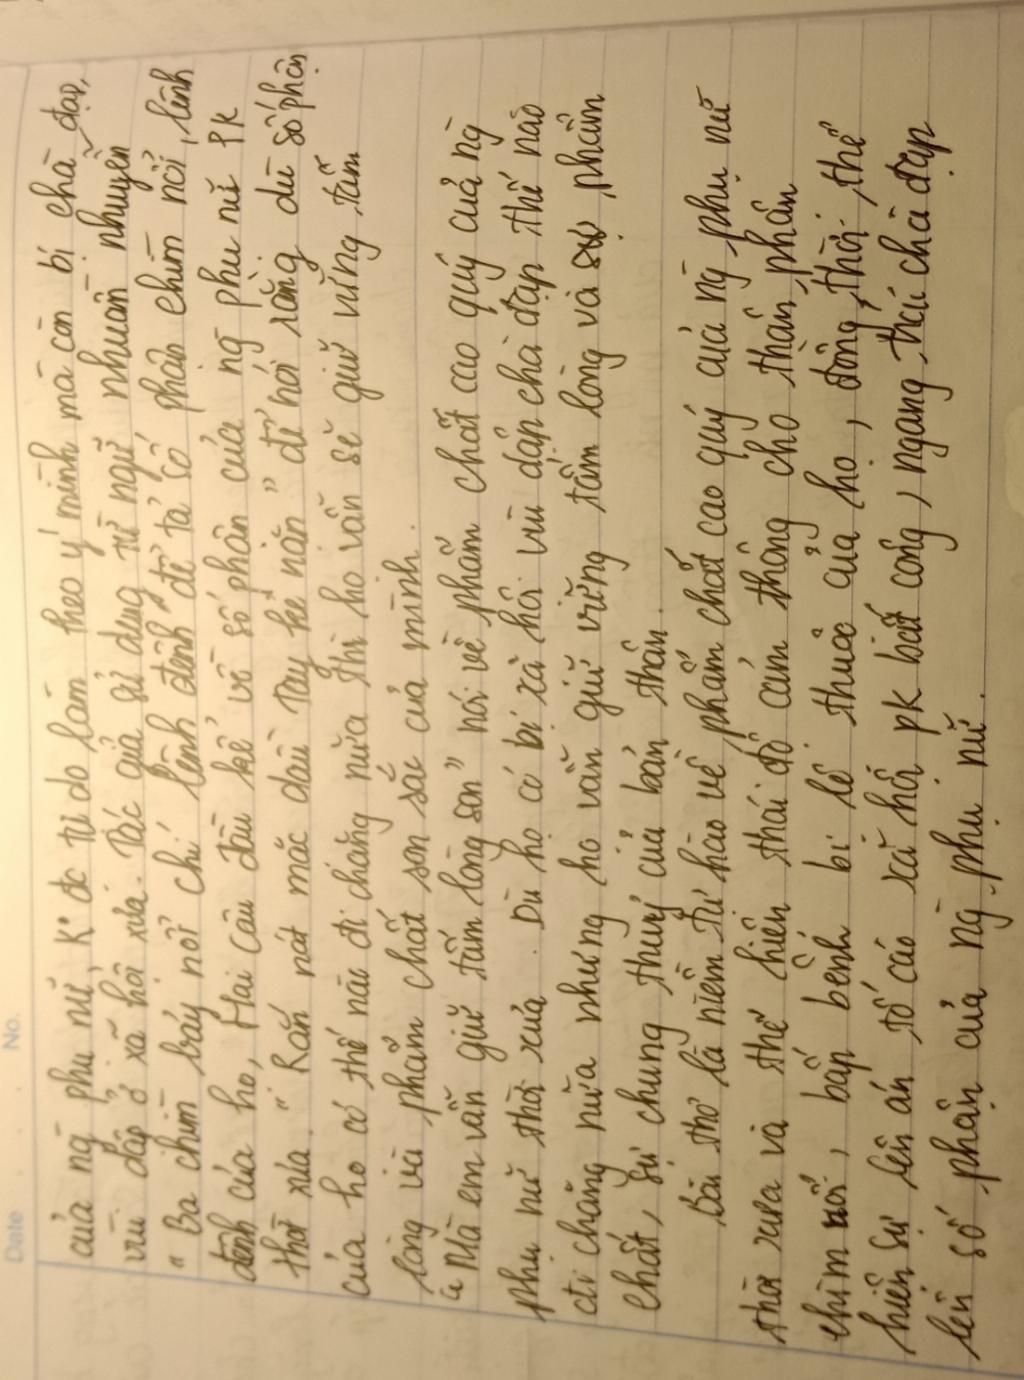 Date No.
của ng phụ nữ, K° đc tự do làm theo ý mình mà còn bị chà đạp,
vùi dập ở xã hội xưa. Tác giả sử dụng từ ngữ nhuần nhuyễn
"Ba chìm bảy nổi" chỉ lênh đênh để tả số phận chìm nổi, lênh
đênh của họ, Hai câu đầu kể về số phận của ng phụ nữ PK
thời xưa. "Rắn nát mặc dầu tay kẻ nặn" để nói rằng dù số phận
của họ có thế nào đi chăng nữa thì họ vẫn sẽ giữ vững tấm
lòng và phẩm chất son sắc của mình.
"Mà em vẫn giữ tấm lòng son" nói về phẩm chất cao quý của ng
phụ nữ thời xưa. Dù họ có bị xã hội vùi dập chà đạp thế nào
đi chăng nữa nhưng họ vẫn giữ vững tấm lòng và phẩm
chất, sự chung thuỷ của bản thân.
Bài thơ là niềm tự hào về phẩm chất cao quý của ng phụ nữ
thời xưa và thể hiện thái độ cảm thông cho thân phận
chìm nổi, bấp bênh bị lệ thuộc của họ, đồng thời thể
hiện sự lên án tố cáo xã hội pk bất công, ngang trái chà đạp
lên số phận của ng phụ nữ.